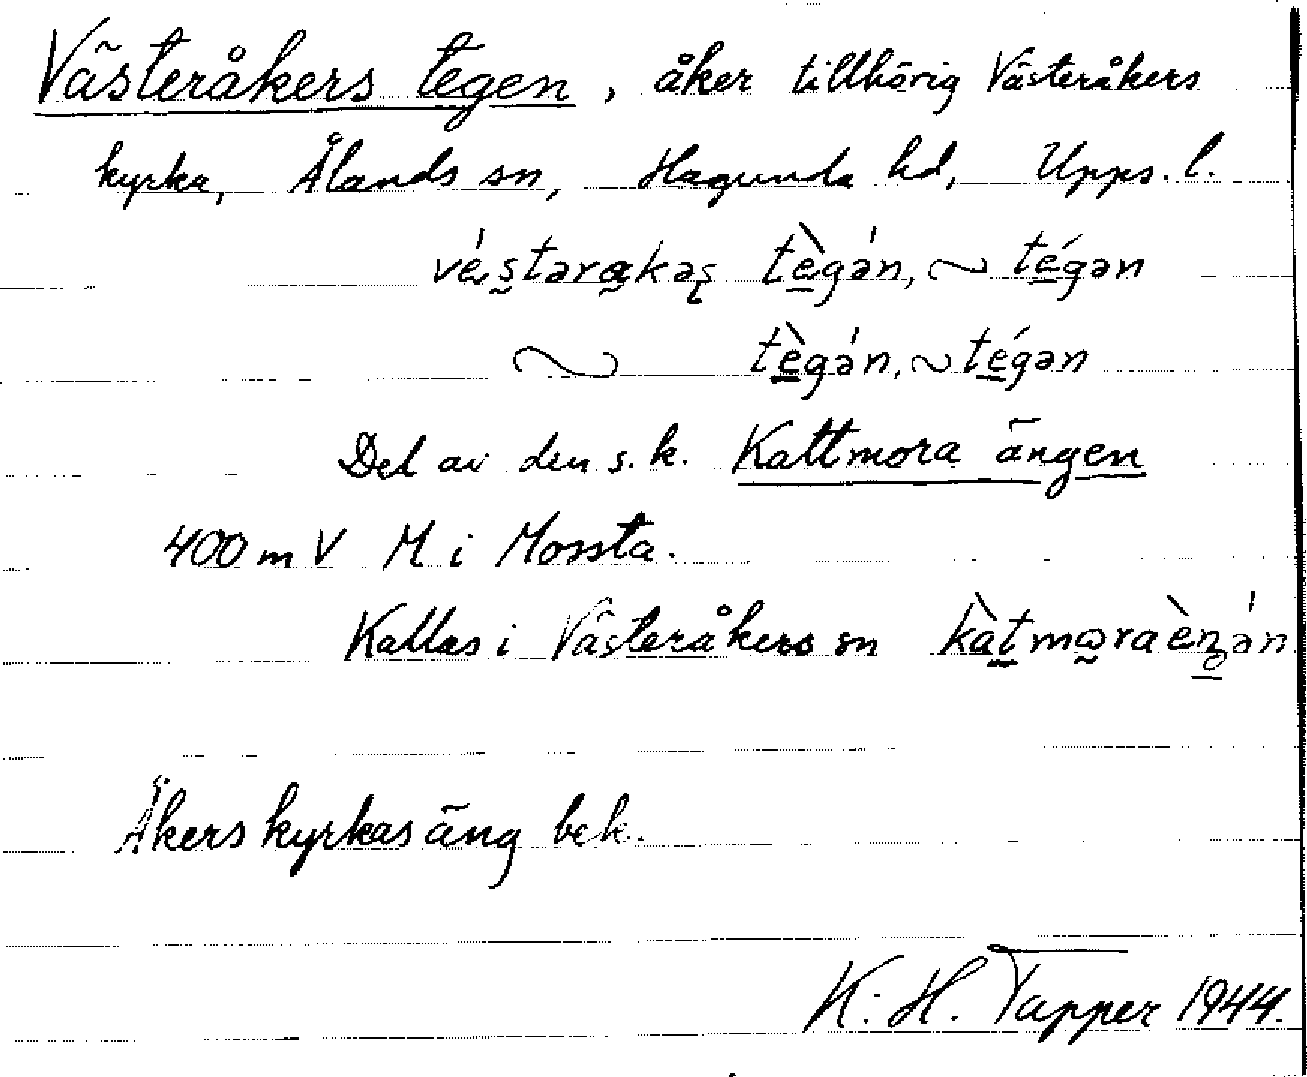 Västeråkers tegen, åker tillhörig Västeråkers
kyrka, Ålands sn, Hagunda hd, Upps. l.
vä́stərakəş tè̱gə́n, ~ té̱gən
~ tè̱gə́n, ~ té̱gən
Del av den s.k. Kattmora ängen
400 m V M i Mossta.
Kallas i Västeråkers sn kàtmoraèŋə́n
Åkers kyrkas äng bek.
K. H. Tapper 1944.